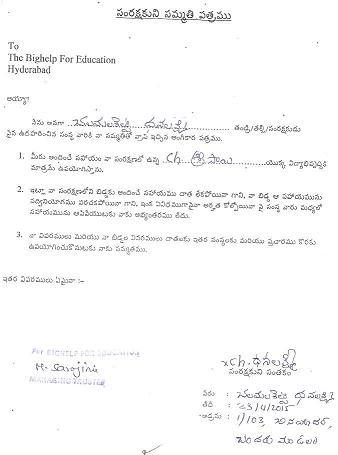 సంరక్షకుని సమ్మతి పత్రము
To
The Bighelp For Education
Hyderabad
అయ్యా!
నేను అనగా ధనలక్ష్మి తండ్రి/తల్లి/సంరక్షకుడు
పైన ఉదహరించిన సంస్థ వారికి నా సమ్మతితో వ్రాసి ఇచ్చిన అంగీకార పత్రము.
1. మీరు అందించే సహాయం నా సంరక్షణలో ఉన్న Ch. శ్రీ సాయి యొక్క విద్యాభివృద్ధికి
మాత్రమే ఉపయోగిస్తాను.
2. ఇట్లా నా సంరక్షణలోని బిడ్డకు అందించే సహాయము దాత లేకపోయినా గాని, నా బిడ్డ ఆ సహాయమును
సద్వినియోగము పరచకపోయినా గాని, ఇంక ఏవిధముగానైనా అర్హత కోల్పోయినా పై సంస్థ వారు మధ్యలో
సహాయమును ఆపివేయుటకు నాకు అభ్యంతరము లేదు.
3. నా వివరములు మరియు నా బిడ్డల వివరములు దాతలకు ఇతర సంస్థలకు మరియు ప్రచారము కొరకు
ఉపయోగించుకొనుటకు నాకు సమ్మతము.
ఇతర వివరములు ఏమైనా :-
For BIGHELP FOR EDUCATION
M. Sarojini
MANAGING TRUSTEE
x Ch. ధనలక్ష్మి
సంరక్షకుని సంతకం
పేరు : ధనలక్ష్మి
తేది : 23/4/2015
అడ్రసు : 1/103,